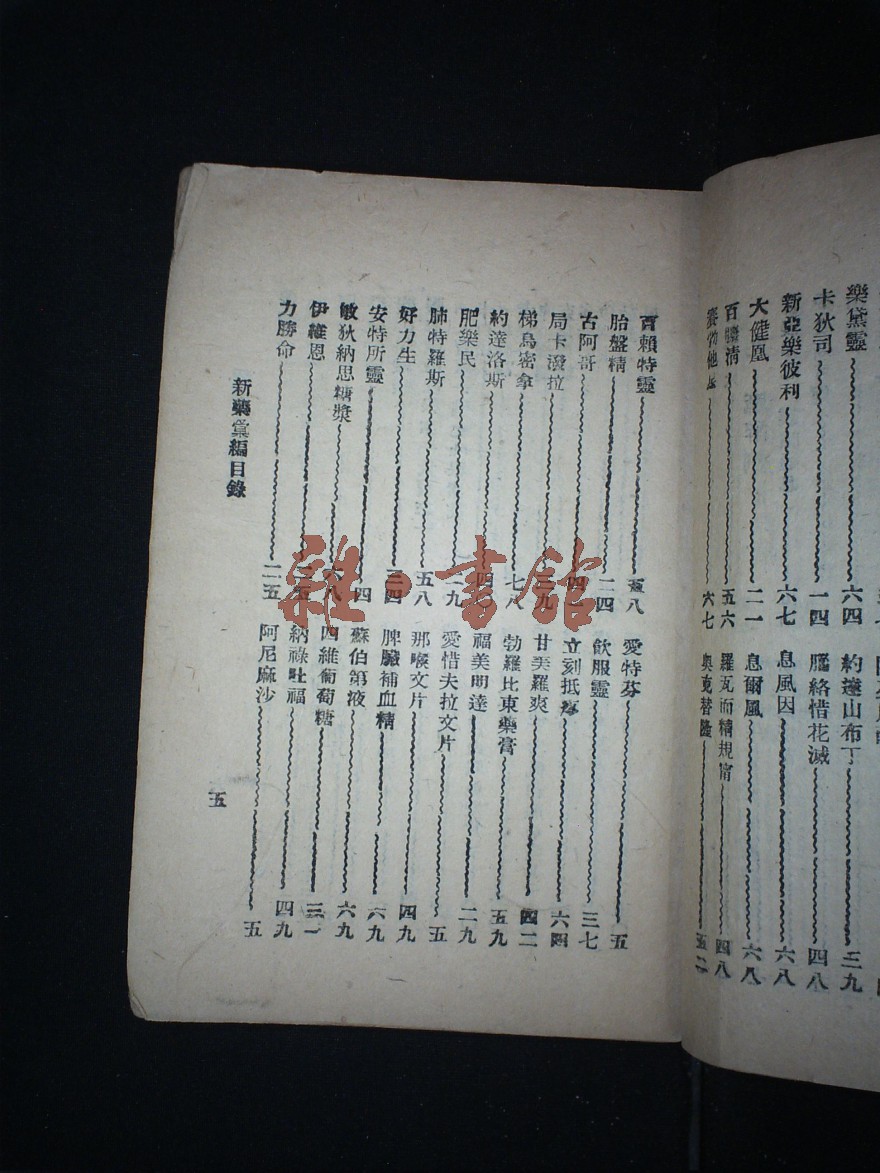 樂黛靈 六四
卡狄司 一四
新亞樂彼利 六七
大健凰 二一
百 清 五六
六七
約達山布丁 三九
腦絡惜花滅 四八
息風因 六八
息爾風 六八
羅瓦而精規甯 四八
奧克替隆
百賴特靈 五八
胎盤精 二四
古阿哥
局卡潑拉 三九
梯鳥密拿 七八
約達洛斯
肥樂民
肺特羅斯 五八
好力生
安特所靈 四
敏狄納思糖漿 六八
伊維恩
力勝命 二五
愛特芬 五
飲服靈 三七
立刻抵 六四
甘美羅爽 四二
勃羅比東藥膏 五九
福美明達 二九
愛惜夫拉文片 五
那喉文片 四九
脾臟補血精 六九
蘇伯第液 六九
四維葡萄糖 三一
納祿吐福 四九
阿尼麻沙 五
新藥彙編目錄
五
雜·書館